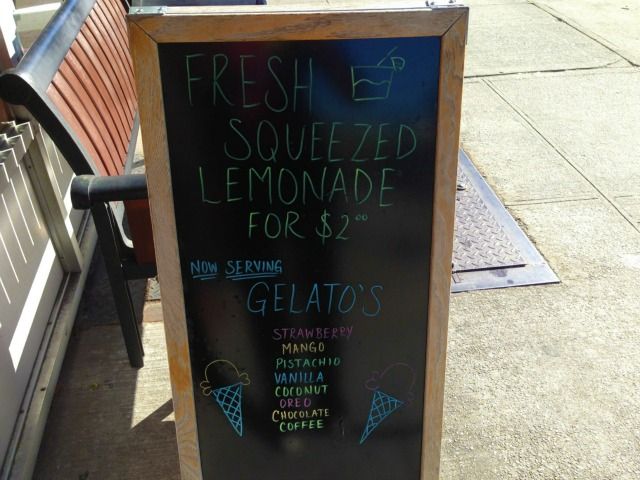 FRESH
SQUEEZED
LEMONADE
FOR $2⁰⁰
NOW SERVING
GELATO'S
STRAWBERRY
MANGO
PISTACHIO
VANILLA
COCONUT
OREO
CHOCOLATE
COFFEE